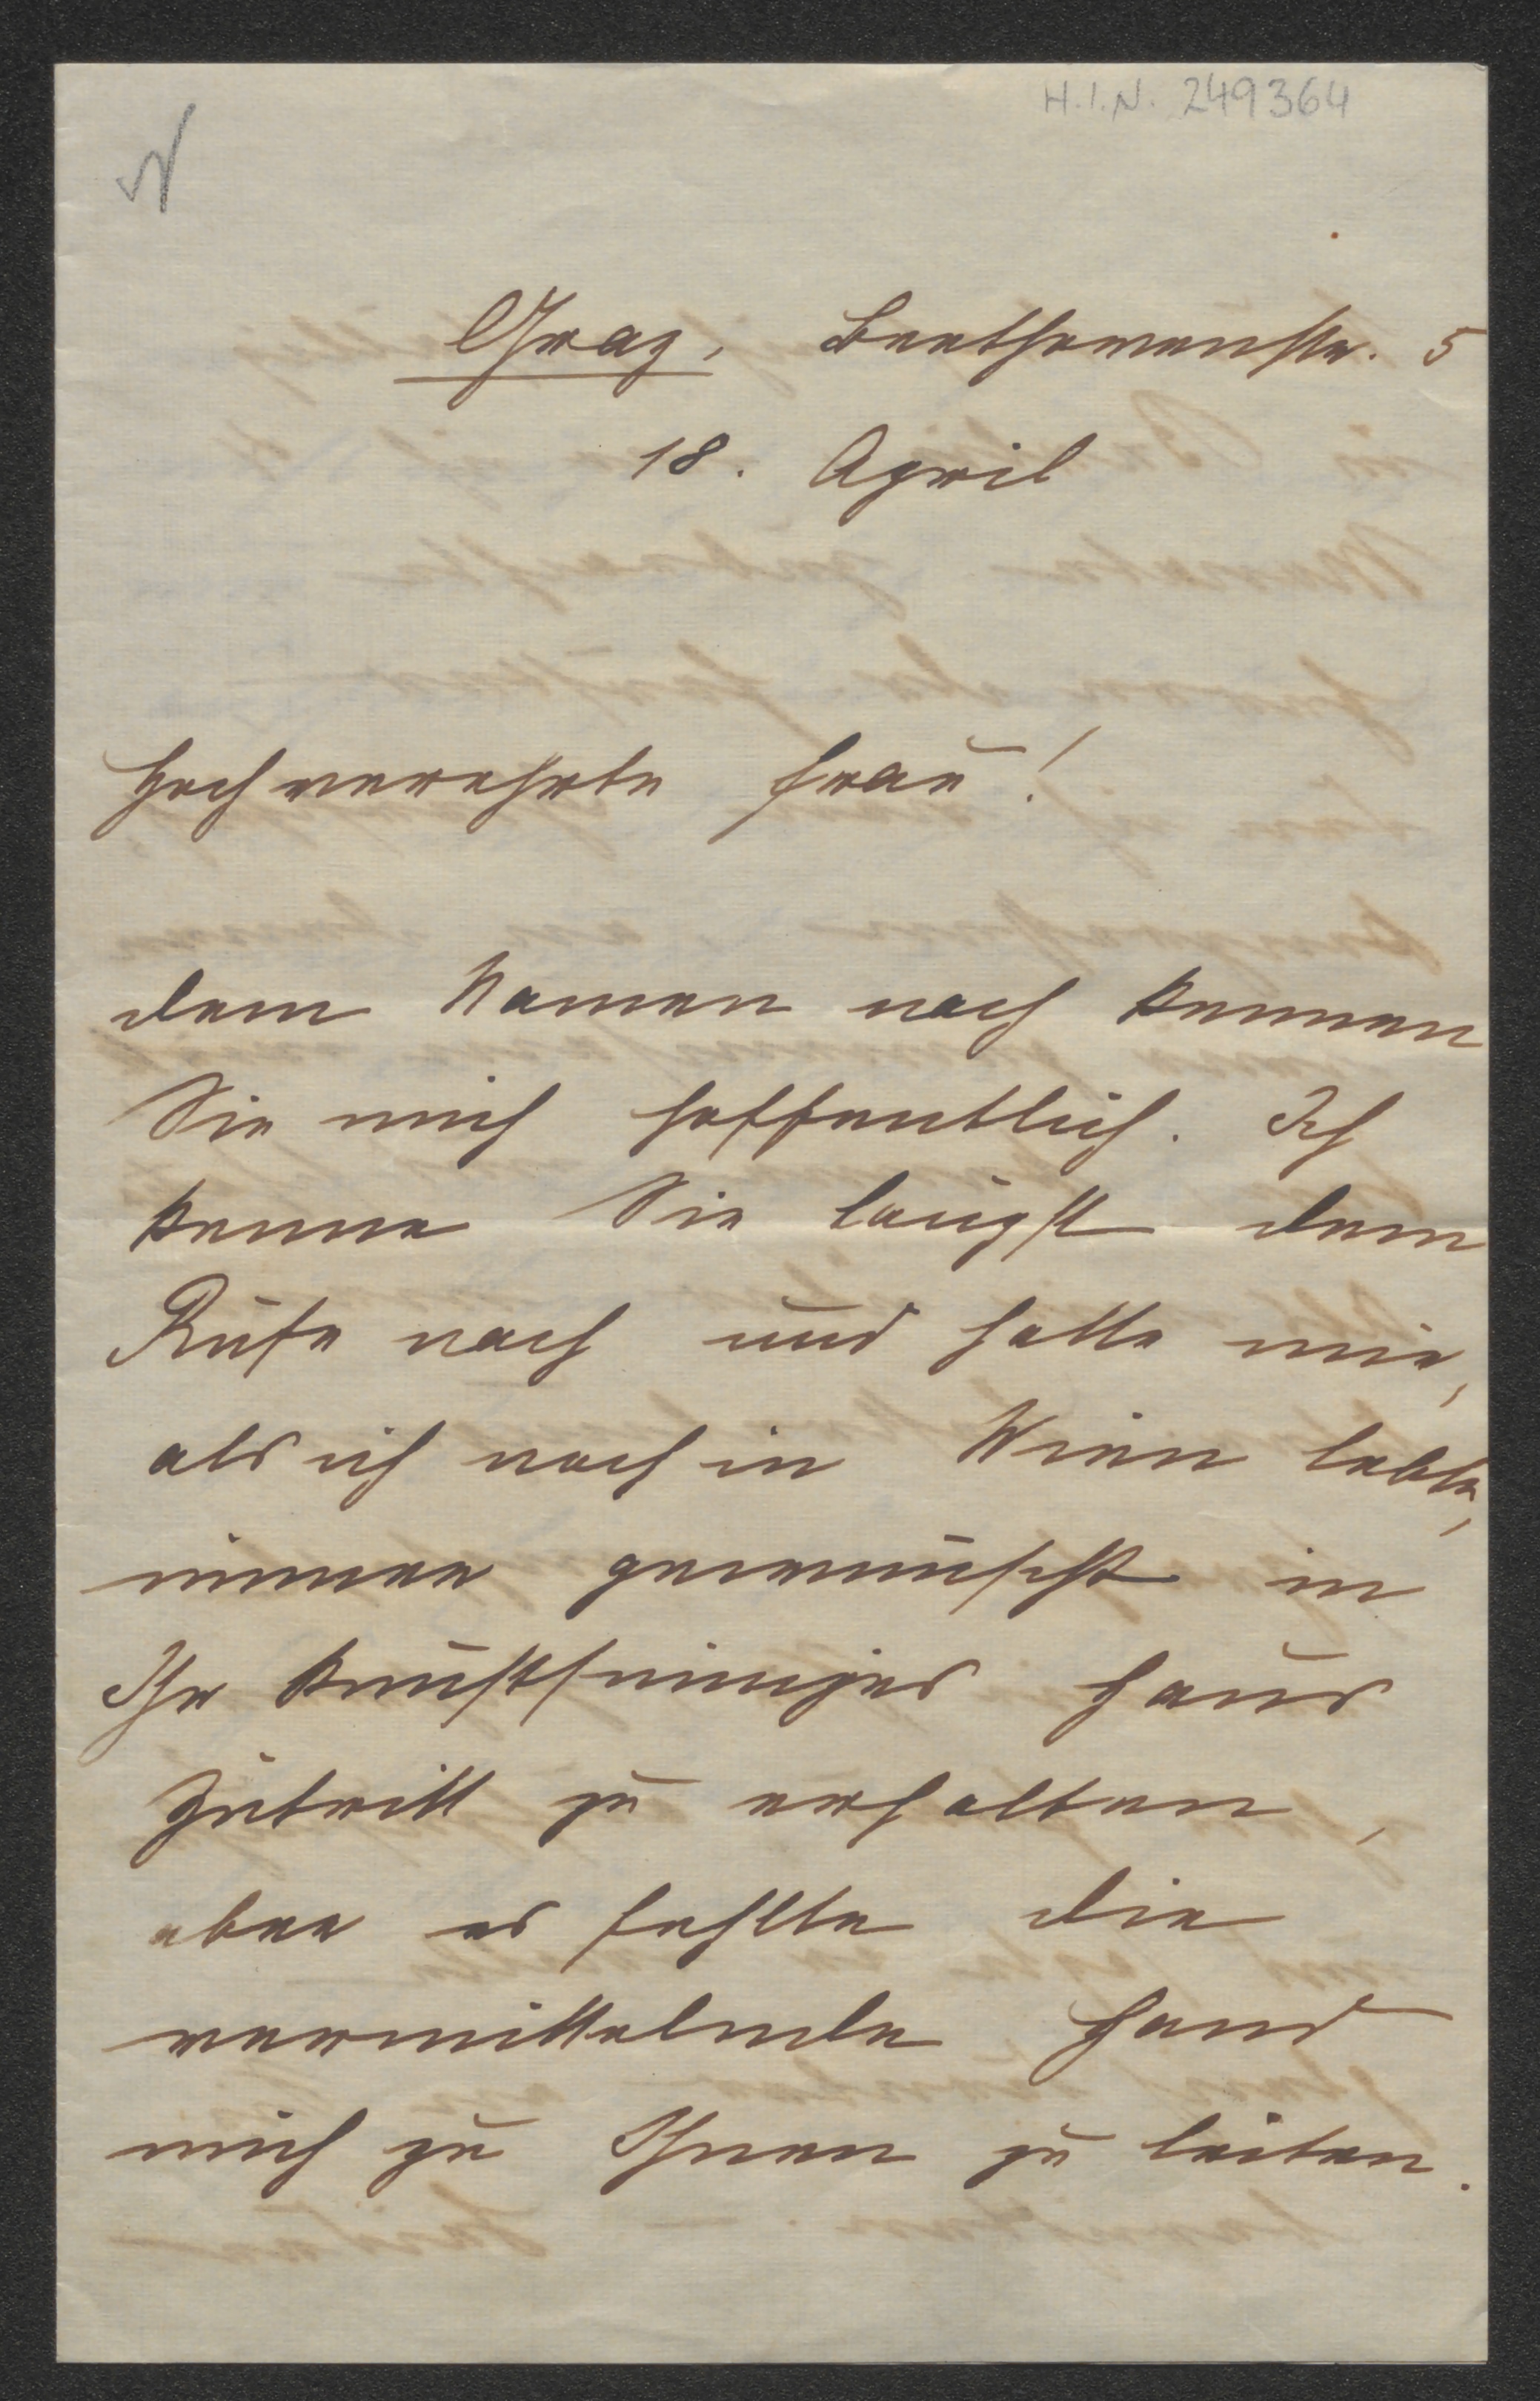 H.I.N. 249364
Graz, Beethovenstr. 5
18. April
Hochverehrte Frau!
dem Namen nach kennen
Sie mich hoffentlich. Ich
kenne Sie längst dem
Rufe nach und hatte mir,
als ich noch in Wien lebte,
immer gewünscht in
Ihr kunstsinniges Haus
Zutritt zu erhalten,
aber es fehlte die
vermittelnde Hand
mich zu Ihnen zu leiten.